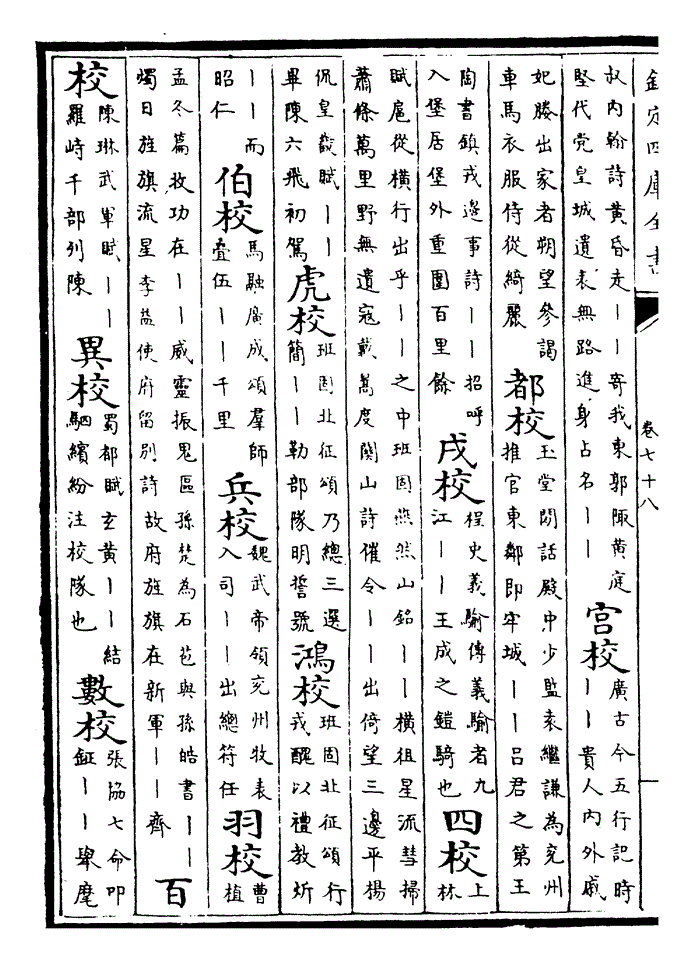 欽定四庫全書
卷七十八
叔内翰詩黄昏走丨丨寄我東郭陬黄庭
堅代党皇城遺表無路進身占名丨丨
宫校
廣古今五行記時
丨丨貴人内外戚
妃勝出家者朔望參謁
車馬衣服侍從綺麗
都校
玉堂閒話殿中少監袁繼謙為兖州
推官東鄰即牢城丨丨吕君之第王
陶書鎮戎邊事詩丨丨招呼
入堡居堡外重圍百里餘
戍校
桯史義騟傳義騟者九
江丨丨王成之鎧騎也
四校
上
林
賦扈從横行出乎丨丨之中班固燕然山銘丨丨横徂星流彗掃
蕭條萬里野無遺寇戴嵩度關山詩催令丨丨出倚望三邊平楊
侃皇畿賦丨丨
畢陳六飛初駕
虎校
班固北征頌乃總三選
簡丨丨勒部隊明誓號
鴻校
班固北征頌行
戎醜以禮教炘
丨丨而
昭仁
伯校
馬融廣成頌羣師
疊伍丨丨千里
兵校
魏武帝領兖州牧表
入司丨丨出總符任
羽校
曹
植
孟冬篇收功在丨丨威靈振鬼區孫楚為石苞與孫皓書丨丨
燭日旌旗流星李益使府留別詩故府旌旗在新軍丨丨齊
百
校
陳琳武軍賦丨丨
羅峙千部列陳
異校
蜀都賦玄黄丨丨結
駟繽紛注校隊也
數校
張協七命叩
鉦丨丨舉麾